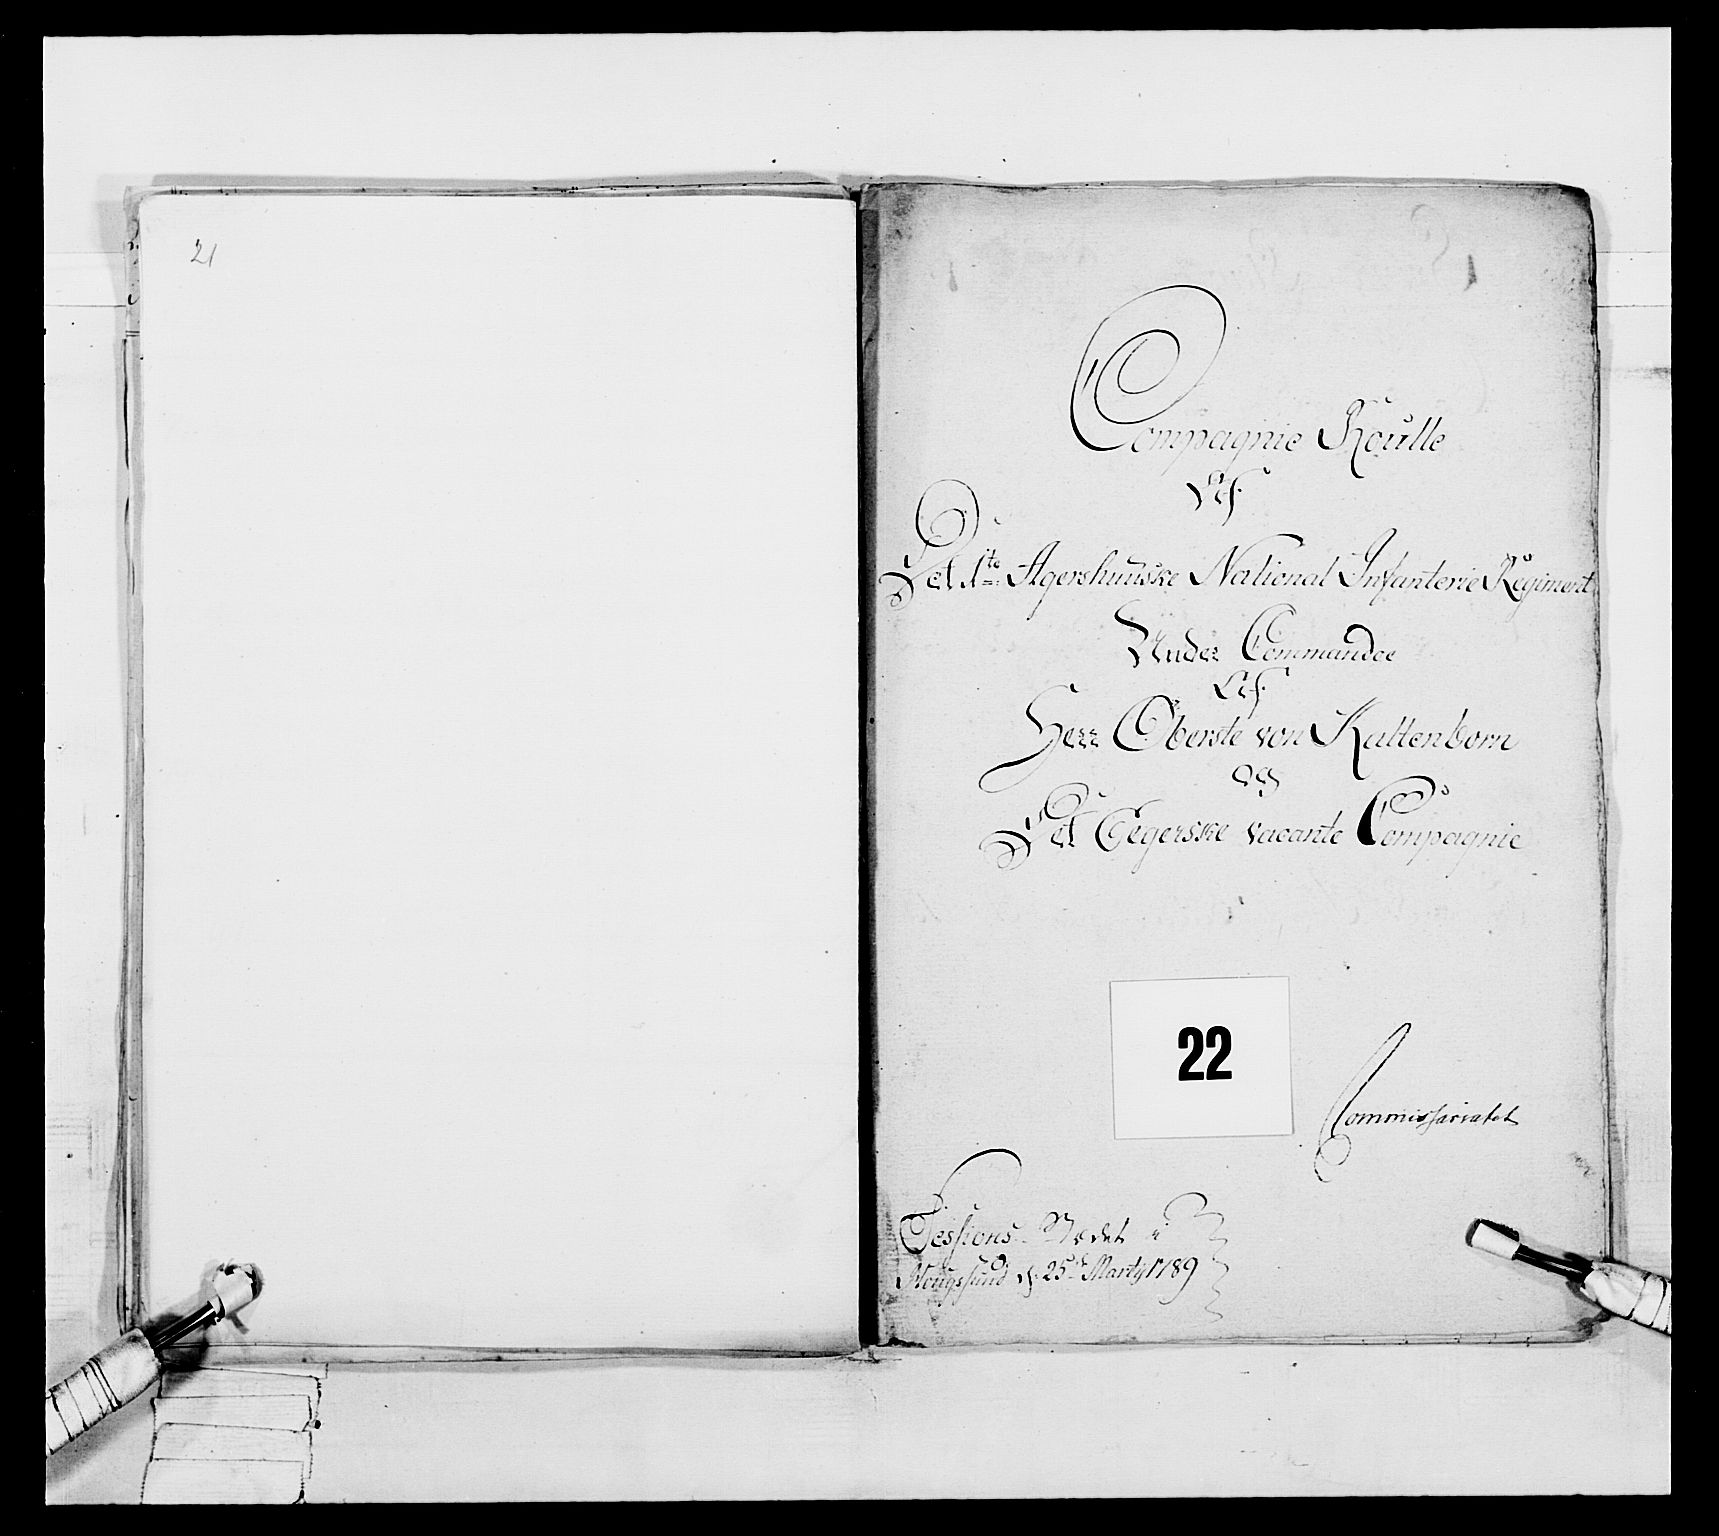 21
Compagnie Roulle
Af
Det 1ste Agershuuske National Infanterie Regiment
Under Commandoe
Af
Herr Oberste von Kaltenborn
og
Det Eegerske vacante Compagnie
22
Commissariatet
Sessions-Stedet i
Hougsund d. 25de Martij 1789